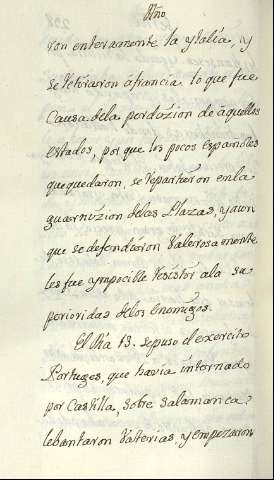 Año
ron enteramente la ytalia, y
se retiraron afrancia lo que fue
Causa dela perdizion de aquellos
estados, por que los pocos españoles
quequedaron, se repartieron enla
guarnizion delas Plazas, y aun
que se defendieron Valerosamente
les fue ymposible resistir ala su
perioridas delos Enemigos.
El Dia 13. sepuso el exercito
Portuges, que havia internado
por Castilla, sobre Salamanca?
lebantaron Vaterias, y empezaron